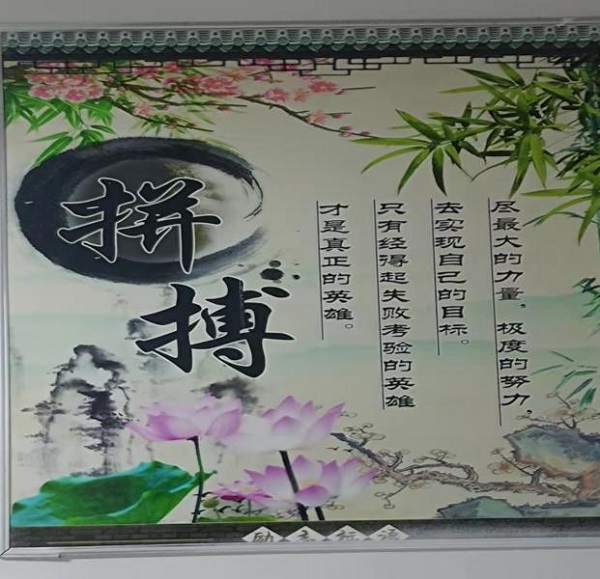 拼搏
尽最大的力量，极度的努力，
去实现自己的目标。
只有经得起失败考验的英雄
才是真正的英雄。
励志标语